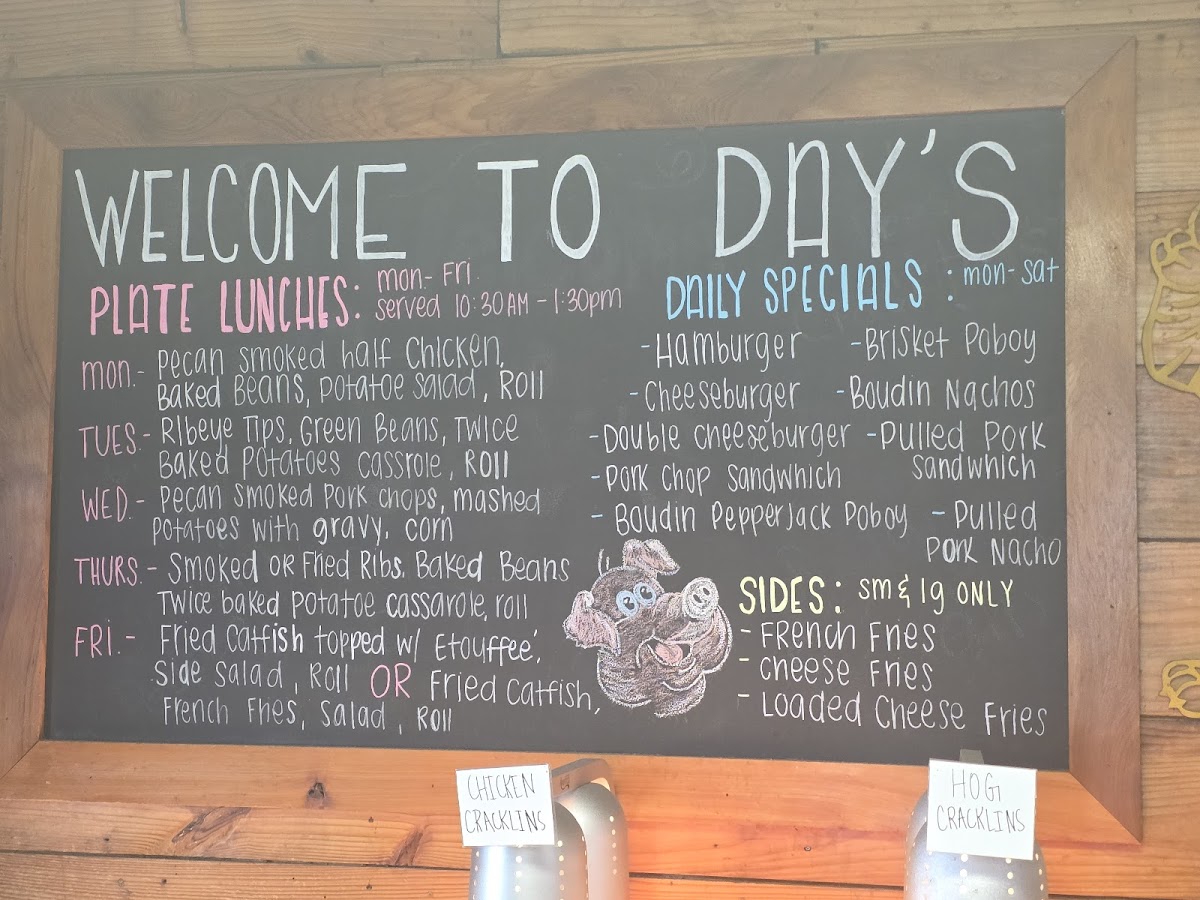 WELCOME TO DAY'S
PLATE LUNCHES: mon-Fri.
served 10:30AM - 1:30pm
MON.- Pecan smoked half Chicken,
Baked Beans, potatoe salad, ROLL
TUES- Ribeye Tips, Green Beans, Twice
Baked Potatoes Cassrole, ROLL
WED.- Pecan smoked Pork chops, mashed
potatoes with gravy. corn
THURS.- Smoked OR Fried Ribs. Baked Beans
Twice baked potatoe cassarole, roll
FRI.- Fried Catfish topped w/ Etouffee',
Side Salad, Roll OR Fried Catfish,
French Fries, Salad, Roll
DAILY SPECIALS: mon-sat
-Hamburger -Brisket Poboy
-Cheeseburger -Boudin Nachos
-Double cheeseburger -Pulled Pork
Sandwhich
-Pork Chop Sandwhich
- Boudin Pepperjack Poboy -Pulled
Pork Nacho
SIDES: sm & lg ONLY
- French Fries
- Cheese Fries
- Loaded Cheese Fries
CHICKEN
CRACKLINS
HOG
CRACKLINS